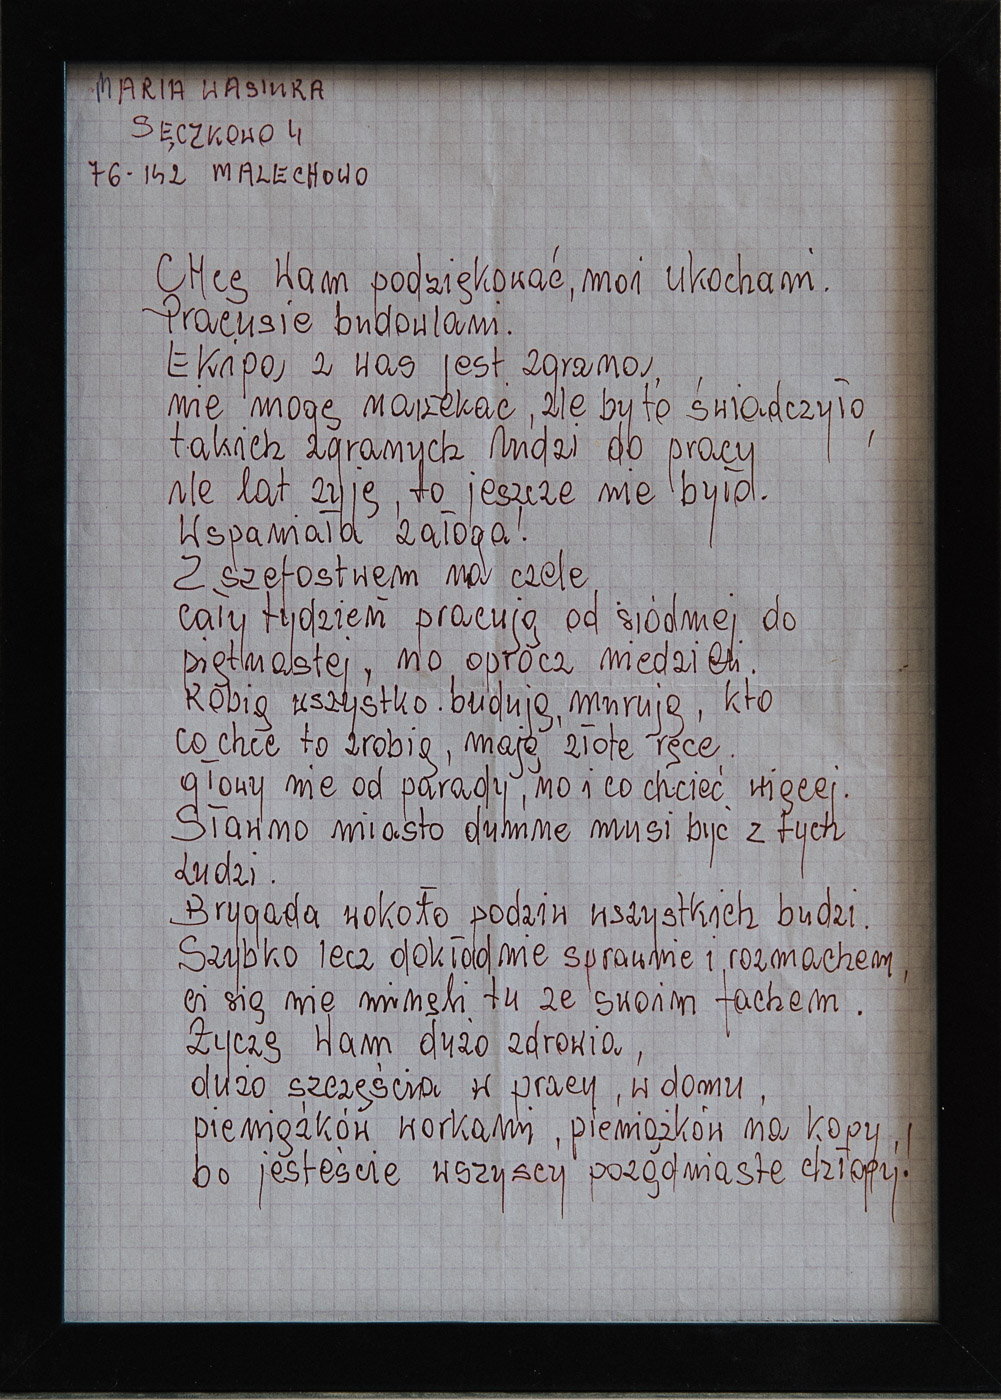 MARIA WASIURA
SĘCZKOWO 4
76-142 MALECHOWO
CHcę Wam podziękować, moi ukochani.
Pracusie budowlani.
Ekipa z was jest zgrana,
nie mogę narzekać, źle by to świadczyło,
takich zgranych ludzi do pracy
ile lat żyję, to jeszcze nie było.
Wspaniała załoga!
Z szefostwem na czele
cały tydzień pracują od siódmej do
piętnastej, no oprócz niedzieli.
Robią wszystko. budują, murują, kto
co chce to zrobią, mają złote ręce,
głowy nie od parady, no i co chcieć więcej.
Sławno miasto dumne musi być z tych
Ludzi.
Brygada wokoło podziw wszystkich budzi.
Szybko lecz dokładnie sprawnie i rozmachem,
ci się nie minęli tu ze swoim fachem.
Życzę Wam dużo zdrowia,
dużo szczęścia w pracy, w domu,
pieniążków workami, pieniążków na kopy,
bo jesteście wszyscy porządniaste chłopy!